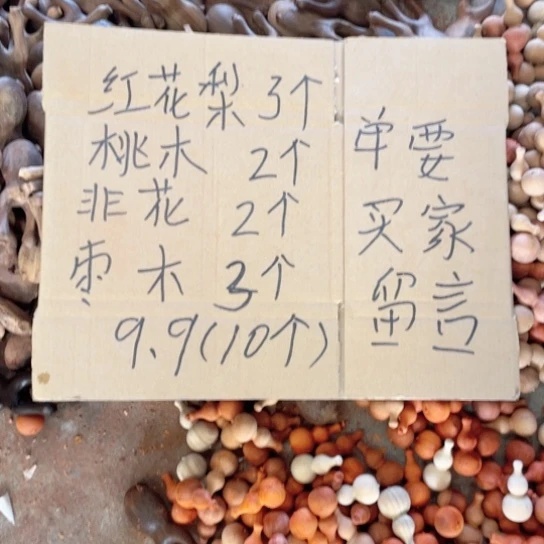 红花梨 3个
桃木 2个
非花 2个
枣木 3个
9.9(10个)
单要
买家
留言